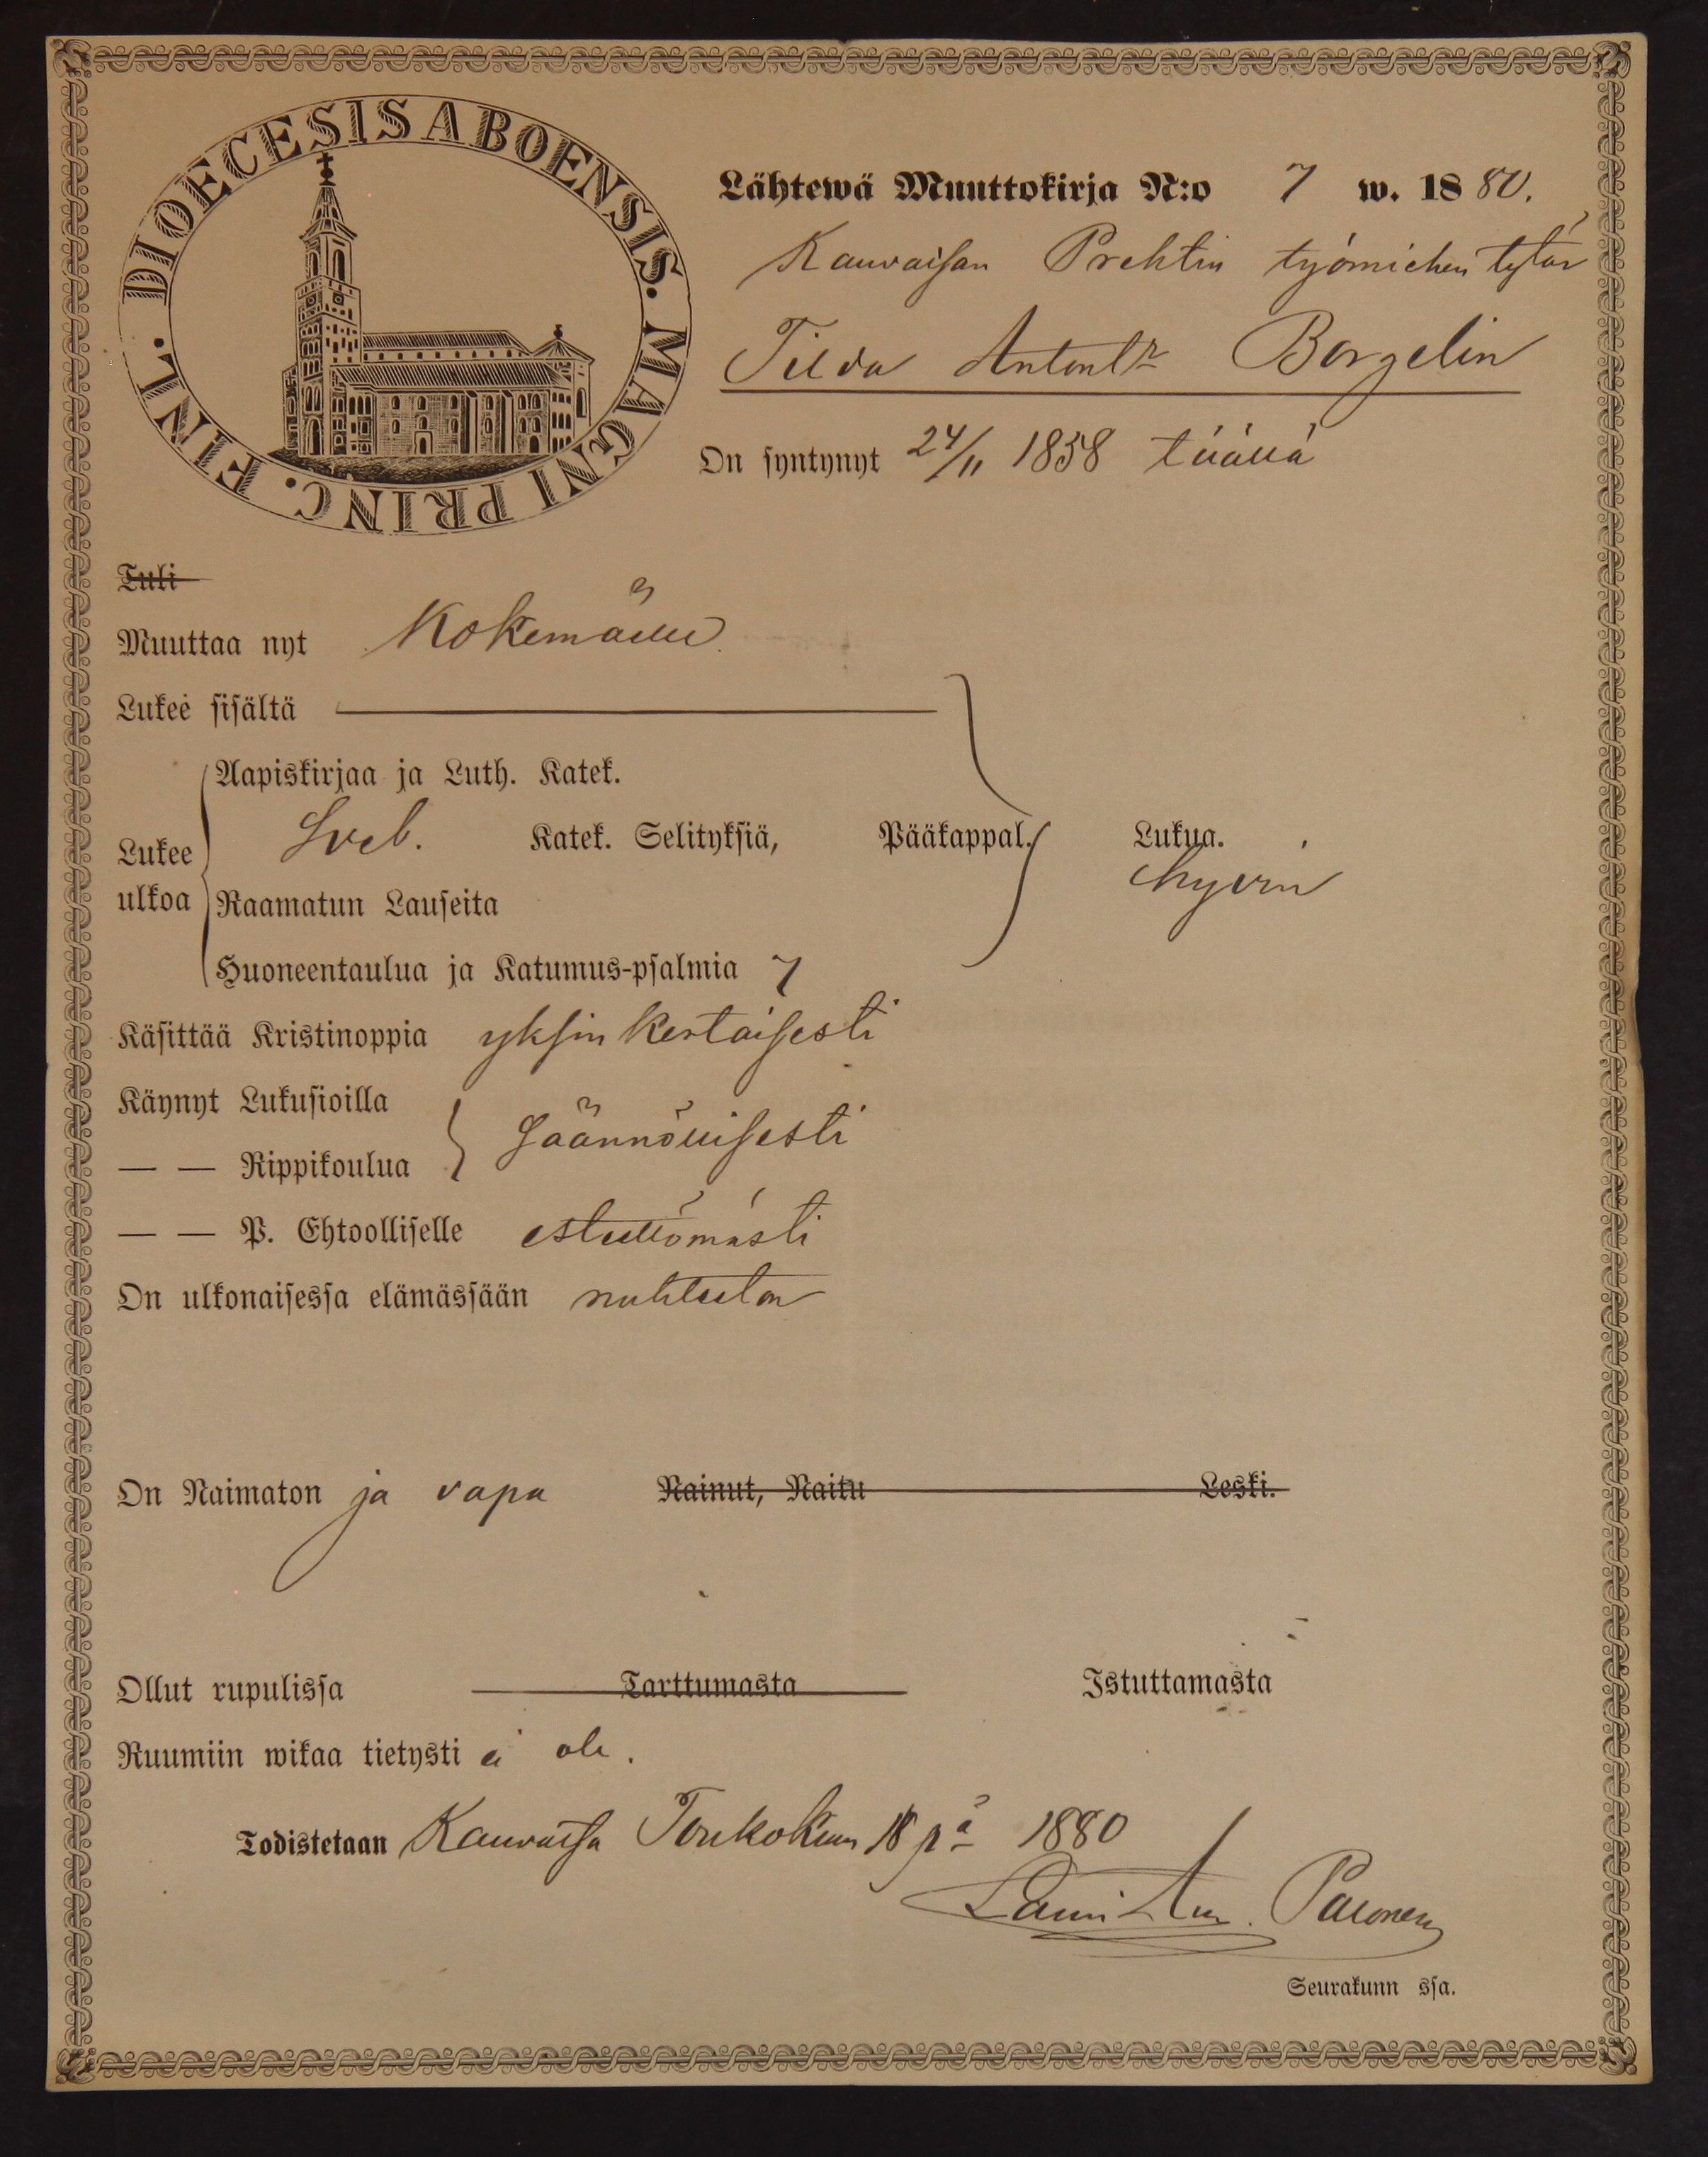 DIOECESIS ABOENSIS. MAGNI PRINC. FINL.
Lähtewä Muuttokirja N:o 7 w. 1880.
Kauvaisan Prehtin työmiehen tytär
Tilda Antont:r Borgelin
On syntynyt 24/11 1858 täällä
Tuli
Muuttaa nyt Kokemälle
Lukee sisältä
Aapiskirjaa ja Luth. Kateк.
Lukee ulkoa
Sveb. Katek. Selityksiä, Pääkappal. Lukua.
hyvin
Raamatun Lauseita
Huoneentaulua ja Katumus-psalmia 7
Käsittää Kristinoppia yksinkertaisesti
Käynyt Lukusioilla
säännöllisesti
— — Rippikoulua
— — P. Ehtoolliselle esteettömästi
On ulkonaisessa elämässään nuhteeton
On Naimaton ja vapa Nainut, Naitu Leski.
Ollut rupulissa Tarttumasta Istuttamasta
Ruumiin wikaa tietysti ei ole.
Todistetaan Kauvatsa Toukokuun 18 p:ä 1880
Seurakunn ssa.